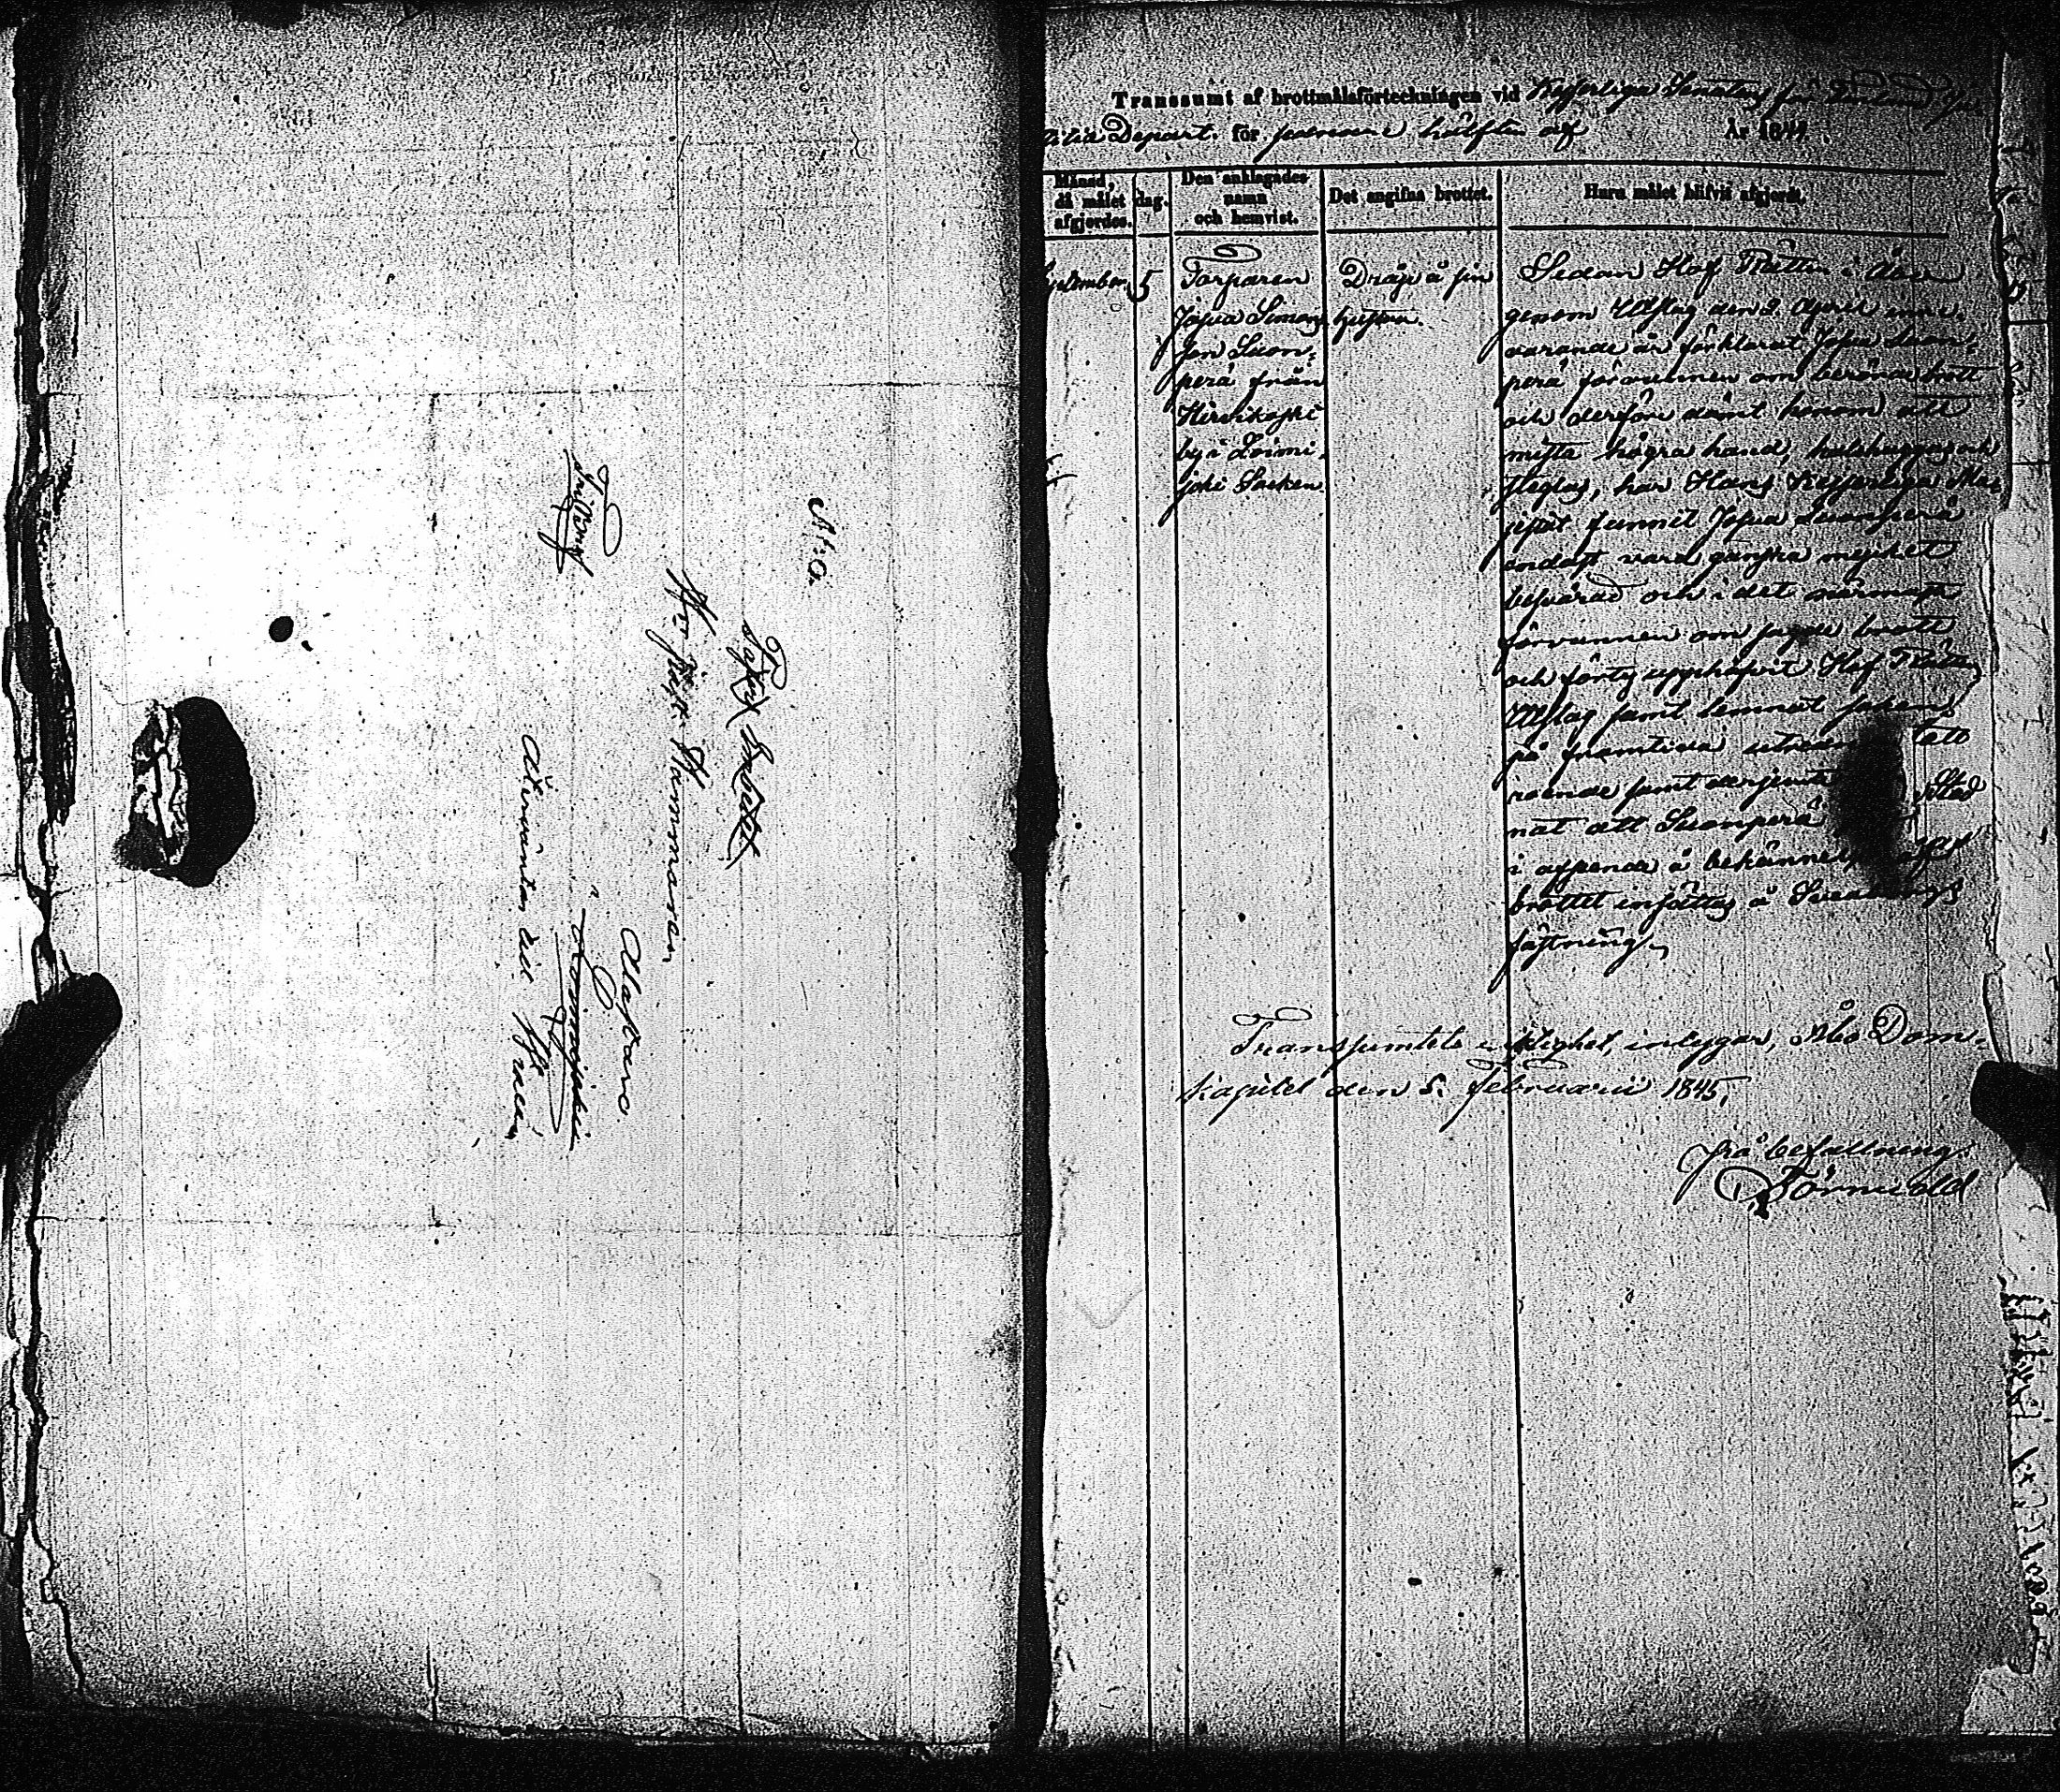 N:o
Herr Kammararen
Alastaro
i
Loimijoki
Återväntas till
Transsumt af brottmålsförteckningen vid Kejserliga Senatens för Finland Ju
stitiæ Depart. för sednare hälften af År 1844.
Månad, då målet afgjordes.
dag.
Den anklagades namn och hemvist.
Det angifna brottet.
Huru målet blifvit afgjordt.
September
5
Torparen
Josua Simons
son Suon-
perä från
Hirvikoski
by i Loimi-
joki Socken.
Dråp å sin
hustru.
Sedan Hof Rätten i Åbo
genom Utslag den 2 April inne-
varande år förklarat Josua Suon-
perä förvunnen om berörda brott
och derföre dömt honom att
mista högra hand, halshuggas och
steglas, har Hans Kejserliga Ma-
jestät funnit Josua Suonperä
endast vara ganska mycket
besvärad och i det närmaste
förvunnen om sagde brott
och förty upphäfvit Hof Rättens
Utslag samt lemnat saken
på framtiden
roende samt derjemte stad
nat att Suonperä
i afseende å bekännelse af
brottet insättas å Sveaborgs
fästning.
Transsumtets riktighet, intygar, Åbo Dom-
kapitel den 5. Februarii 1845.
På befallning:
Törnudd